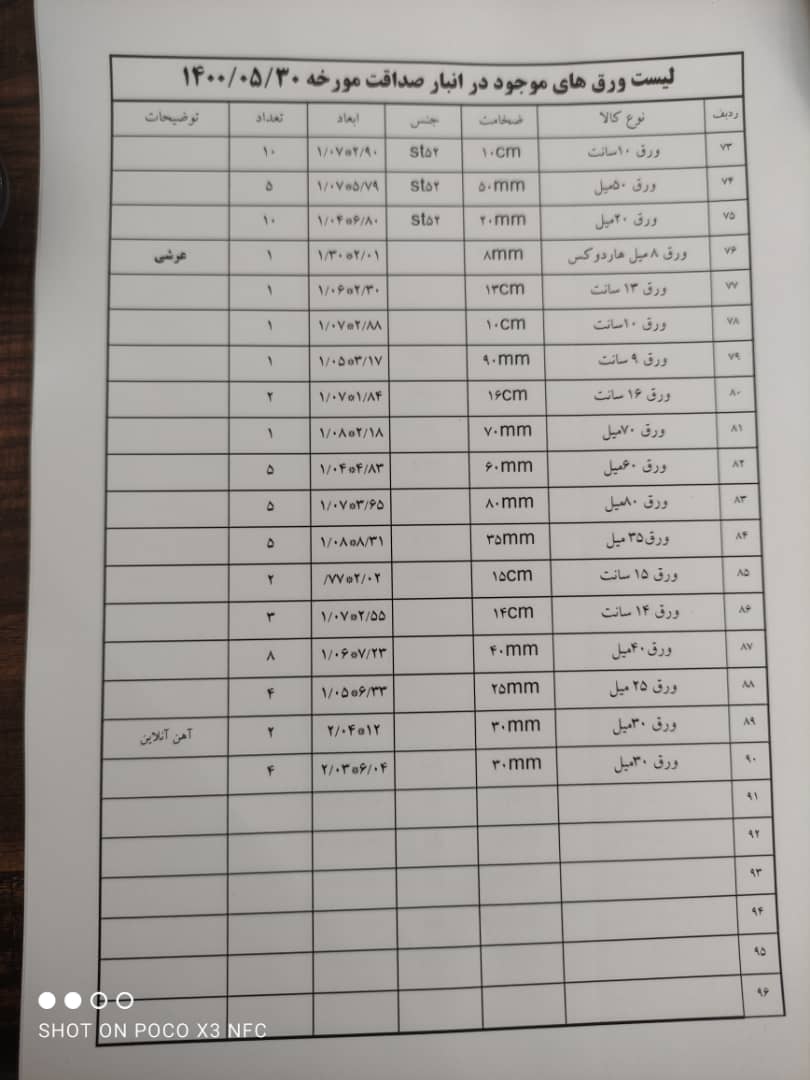 لیست ورق های موجود در انبار صداقت مورخه ۱۴۰۰/۰۵/۳۰
ردیف نوع کالا ضخامت جنس ابعاد تعداد توضیحات
۷۳ ورق ۱۰سانت ۱۰cm st۵۲ ۱/۰۷*۲/۹۰ ۱۰
۷۴ ورق ۵۰میل ۵۰mm st۵۲ ۱/۰۷*۵/۷۹ ۵
۷۵ ورق ۲۰میل ۲۰mm st۵۲ ۱/۰۴*۶/۸۰ ۱۰
۷۶ ورق ۸ میل هاردوکس ۸mm ۱/۳۰*۲/۰۱ ۱ عرشی
۷۷ ورق ۱۳ سانت ۱۳cm ۱/۰۶*۲/۳۰ ۱
۷۸ ورق ۱۰سانت ۱۰cm ۱/۰۷*۲/۸۸ ۱
۷۹ ورق ۹ سانت ۹۰mm ۱/۰۵*۳/۱۷ ۱
۸۰ ورق ۱۶ سانت ۱۶cm ۱/۰۷*۱/۸۴ ۲
۸۱ ورق ۷۰میل ۷۰mm ۱/۰۸*۲/۱۸ ۱
۸۲ ورق ۶۰میل ۶۰mm ۱/۰۴*۴/۸۳ ۵
۸۳ ورق ۸۰میل ۸۰mm ۱/۰۷*۳/۶۵ ۵
۸۴ ورق۳۵ میل ۳۵mm ۱/۰۸*۸/۳۱ ۵
۸۵ ورق ۱۵ سانت ۱۵cm /۷۷*۲/۰۲ ۲
۸۶ ورق ۱۴ سانت ۱۴cm ۱/۰۷*۲/۵۵ ۳
۸۷ ورق۴۰میل ۴۰mm ۱/۰۶*۷/۲۳ ۸
۸۸ ورق ۲۵ میل ۲۵mm ۱/۰۵*۶/۳۳ ۴
۸۹ ورق ۳۰میل ۳۰mm ۲/۰۴*۱۲ ۲ آهن آنلاین
۹۰ ورق ۳۰میل ۳۰mm ۲/۰۳*۶/۰۴ ۴
۹۱
۹۲
۹۳
۹۴
۹۵
۹۶
SHOT ON POCO X3 NFC